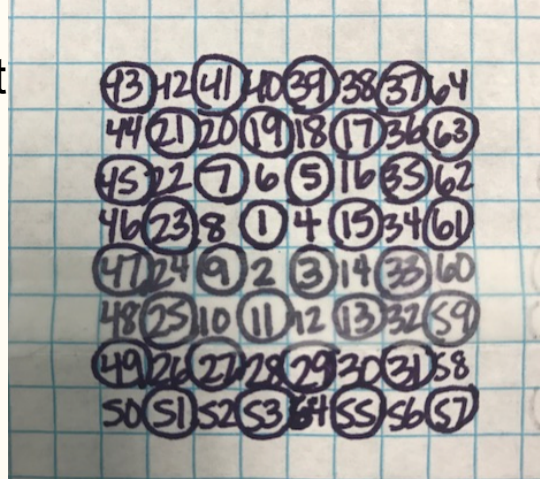 t
43 42 41 40 39 38 37 64
44 21 20 19 18 17 36 63
45 22 7 6 5 16 35 62
46 23 8 1 4 15 34 61
47 24 9 2 3 14 33 60
48 25 10 11 12 13 32 59
49 26 27 28 29 30 31 58
50 51 52 53 54 55 56 57